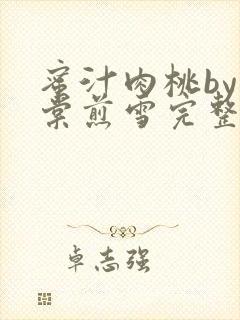 蜜汁肉桃by
棠煎雪完整
卓志强